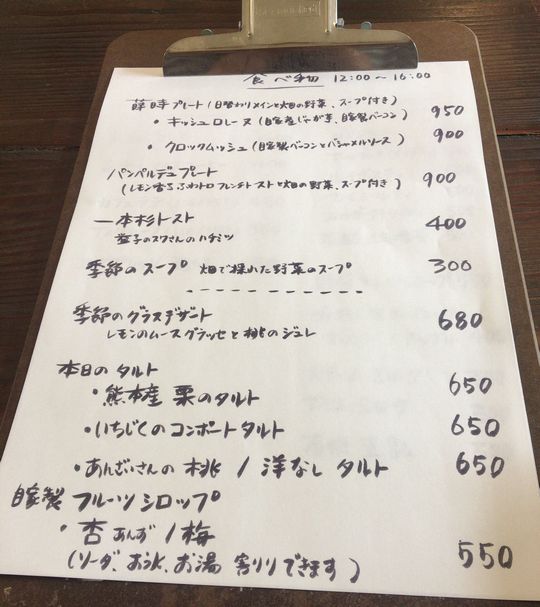 食べ物 12:00〜16:00
蒔時プレート(日替わりメインと畑の野菜、スープ付き)
・キッシュロレーヌ(自家産じゃが芋、自家製ベーコン) 950
・クロックムッシュ(自家製ベーコンとベシャメルソース) 900
パンペルデュプレート
(レモン香るふわトロフレンチトーストと畑の野菜、スープ付き) 900
一本杉トースト 400
益子のスワさんのハチミツ
季節のスープ 畑で採れた野菜のスープ 300
季節のグラスデザート 680
レモンのムースグラッセと桃のジュレ
本日のタルト
・熊本産 栗のタルト 650
・いちじくのコンポートタルト 650
・あんざいさんの桃 / 洋なし タルト 650
自家製 フルーツシロップ
・杏 あんず / 梅
(ソーダ、お水、お湯 割りできます) 550